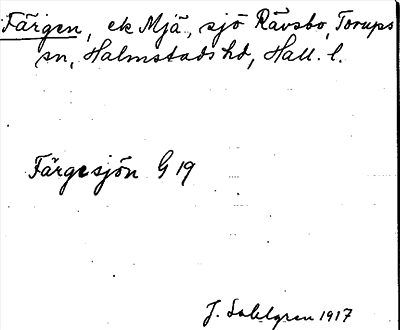 Färgen, ek Mjä, sjö Rävsbo, Torups
sn, Halmstads hd, Hall. l.
Färgesjön G 19
J. Sahlgren 1917